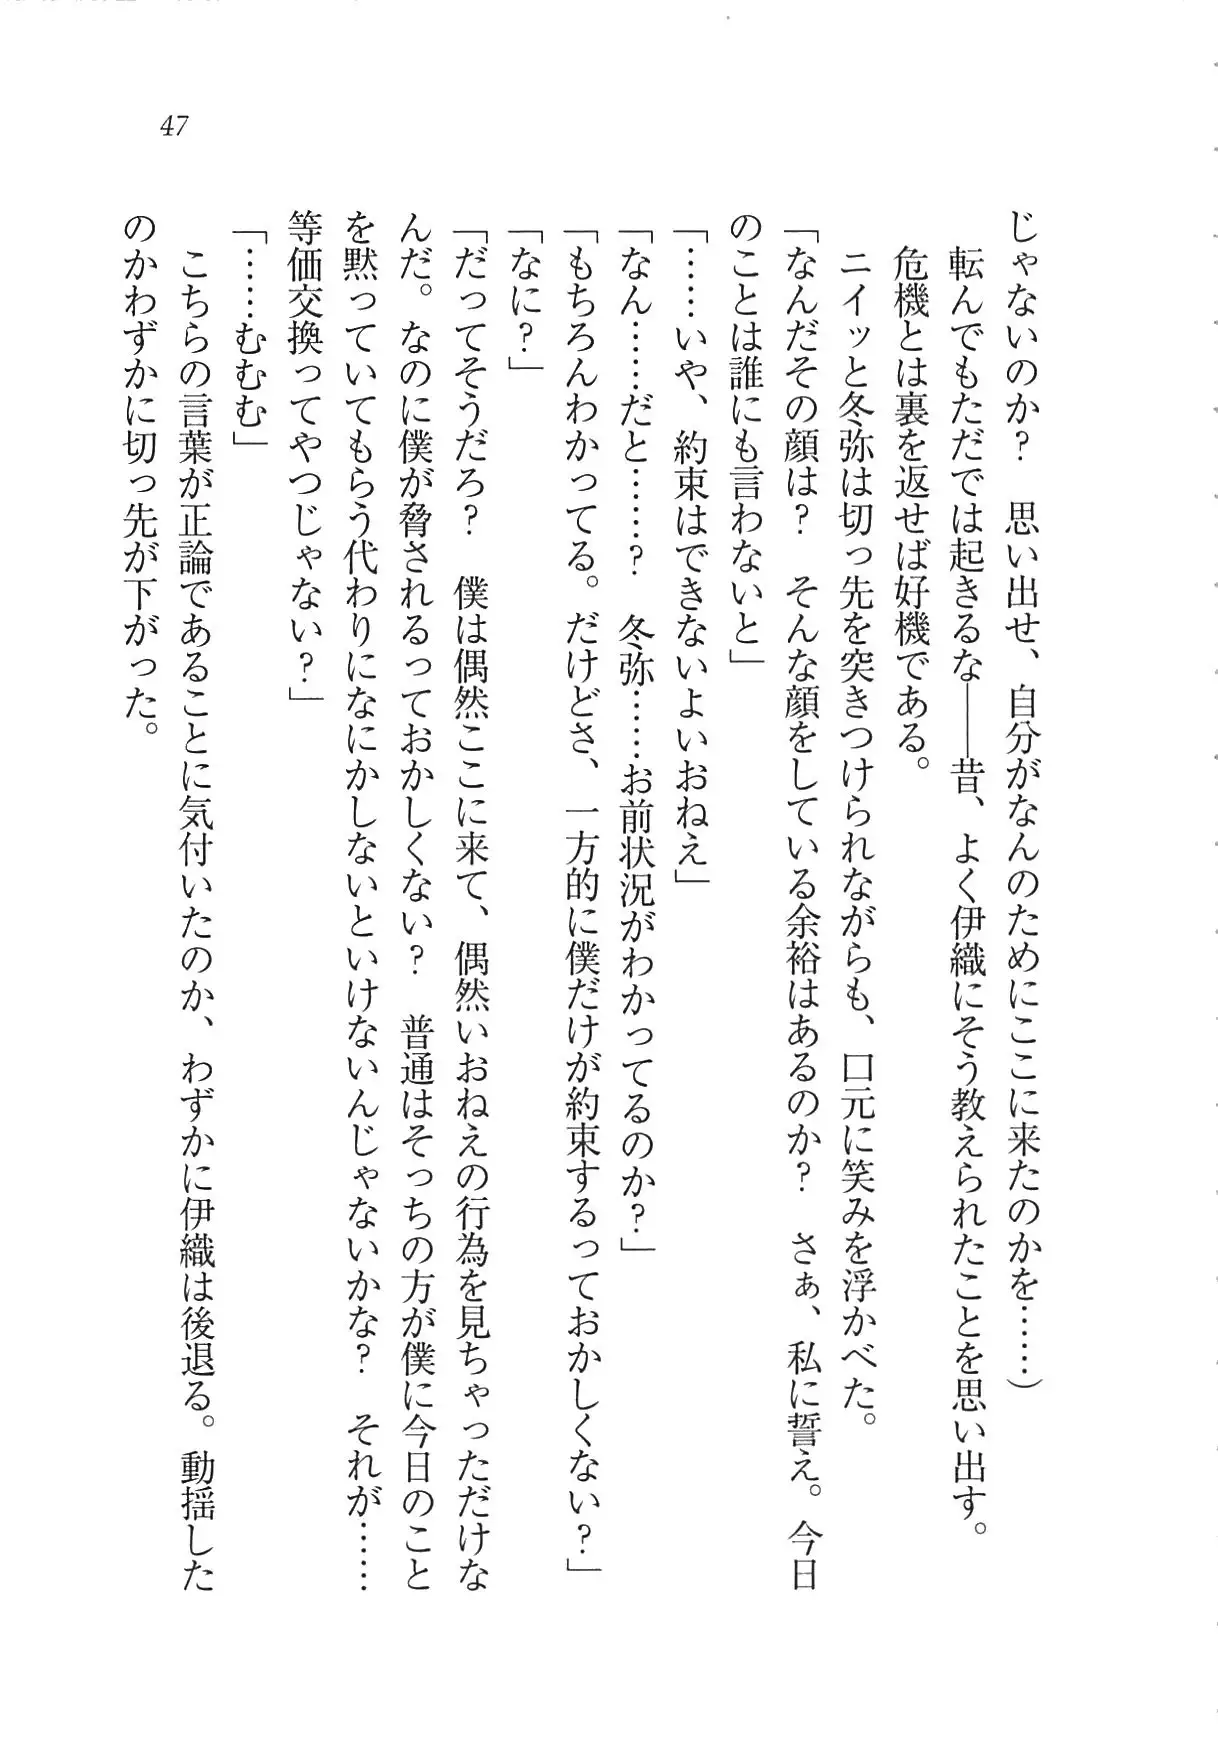 47
じゃないのか?　思い出せ、自分がなんのためにここに来たのかを……）
　転んでもただでは起きるな――昔、よく伊織にそう教えられたことを思い出す。
　危機とは裏を返せば好機である。
　ニイッと冬弥は切っ先を突きつけられながらも、口元に笑みを浮かべた。
「なんだその顔は?　そんな顔をしている余裕はあるのか?　さぁ、私に誓え。今日
のことは誰にも言わないと」
「……いや、約束はできないよいおねえ」
「なん……だと……?　冬弥……お前状況がわかってるのか?」
「もちろんわかってる。だけどさ、一方的に僕だけが約束するっておかしくない?」
「なに?」
「だってそうだろ?　僕は偶然ここに来て、偶然いおねえの行為を見ちゃっただけな
んだ。なのに僕が脅されるっておかしくない?　普通はそっちの方が僕に今日のこと
を黙っていてもらう代わりになにかしないといけないんじゃないかな?　それが……
等価交換ってやつじゃない?」
「……むむむ」
　こちらの言葉が正論であることに気付いたのか、わずかに伊織は後退る。動揺した
のかわずかに切っ先が下がった。